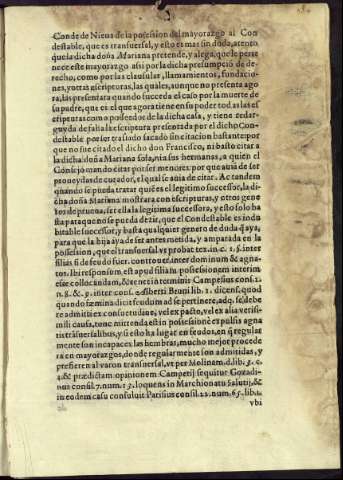 Conde de Nieua de la posesion del mayorazgo al Con
destable, que es transuersal, y esto es mas sin duda, atento
que la dicha doña Mariana pretende, y alega, que le perte
nece este mayorazgo assi por la dicha presumpciõ de de-
recho, como por las clausulas, llamamientos, fundacio-
nes, y otras escripturas, las quales, aunque no presenta ago
ra, las presentara quando succeda el caso por la muerte de
su padre, que es el que agora tiene en su poder todas las es
cripturas como posseedor de la dicha casa, y tiene redar-
guyda de falsa la scriptura presentada por el dicho Con-
destable por ser traslado sacado sin citacion bastante por
que no fue citado el dicho don Francisco, ni basto citar a
la dicha doña Mariana sola, ni a sus hermanas, a quien el
Consejo mando citar por ser menores: por que auia de ser
proueydas de curador, el qual se auia de citar. Ac tandem
quando se pueda tratar quiē es el legitimo successor, la di-
cha doña Mariana mostrara con escripturas, y otros gene
ros de prueua, ser ella la legitima successora, y esto solo ba
sta para que no se pueda dezir, que el Condestable es indu
bitable successor, y basta qualquier genero de duda q̃ aya,
para que la hija aya de ser antes metida, y amparada en la
possession, que el transuersal vt probat tex. in c. 1. §. inter
filiã si de feudo fuer. contro uer. inter dominum & agna-
tos. Ibi responsum est apud filiam possessionem interim
esse collocandam, & tenet in terminis Campesus cons. 12.
n. 8. & p. inter cons. Alberti Bruni lib. 1. dicens, quod
quando fœmina dicit feudum ad se pertinere, adq. se debe
re admitti ex consuetudine, vel ex pacto, vel ex alia verisi-
mili causa, tunc mittenda est in possessionē expulsis agna
tis trãsuersalibus, y si esto ha lugar en feudos, en q̃ regular
mente son incapaces las hembras, mucho mejor procede
ra en mayorazgos, donde regularmente son admitidas, y
prefieren al varon transuersal, vt per Molinam, d. lib. 3. c.
4. & prædictam opinionem Campetij sequitur Gozadi-
nus consil. 7. num. 13. loquens in Marchionatu Saluti, &
in eodem casu consuluit Parisius consil. 22. num. 65. lib. 1.
vbi